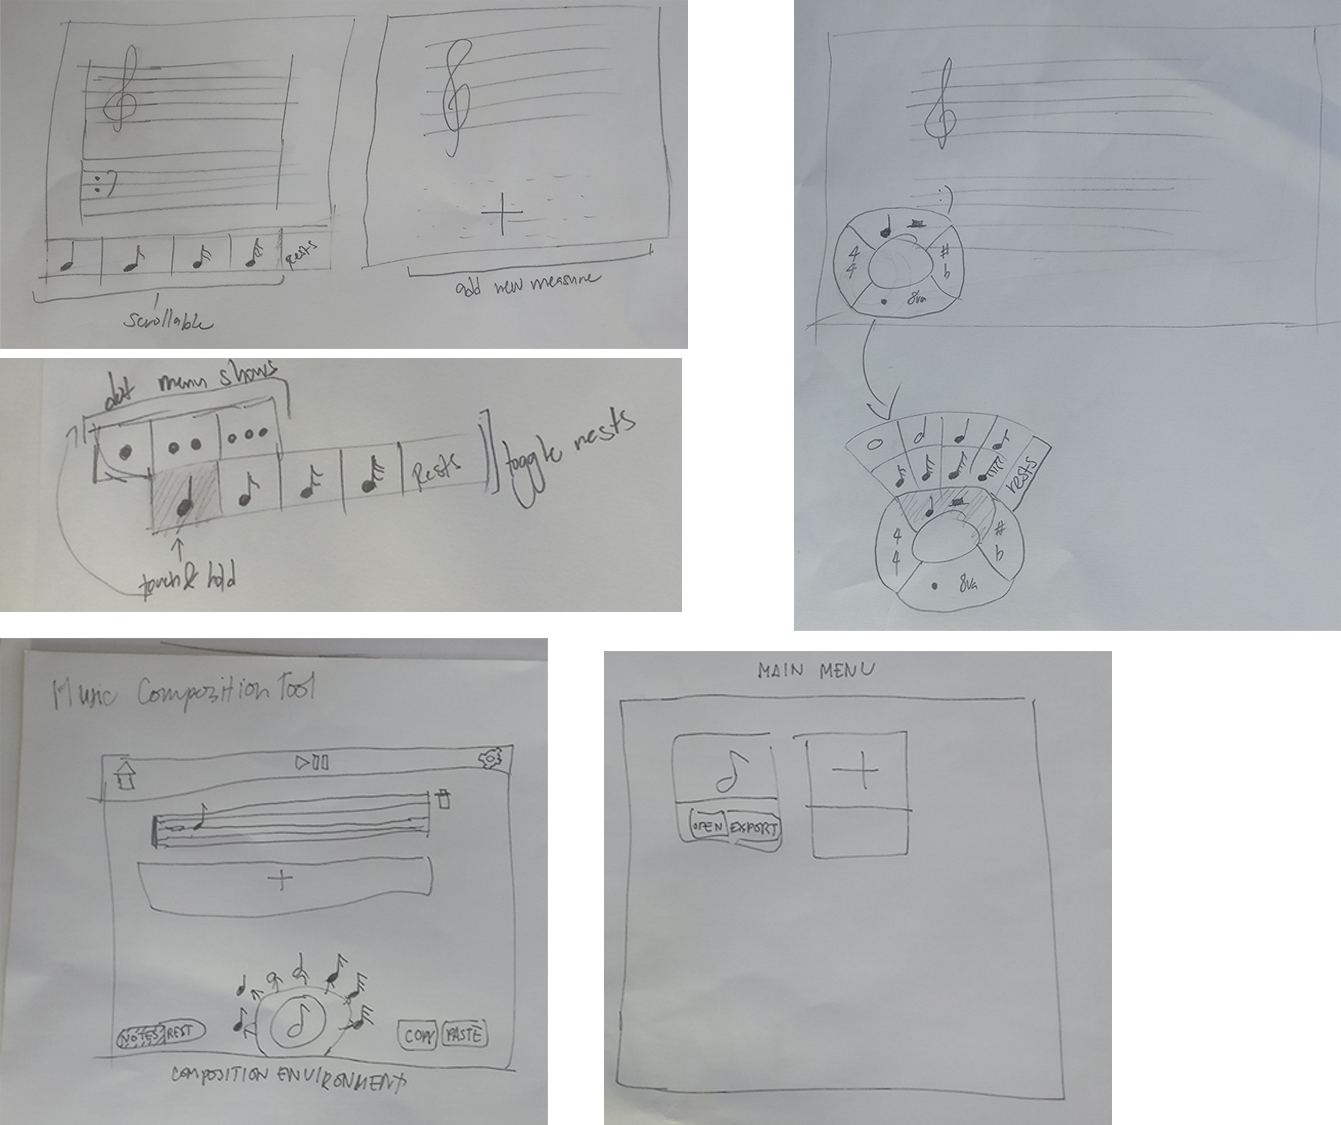 Rests
scrollable
add new measure
4
4
#
b
8va
rests
4
4
#
b
8va
dot menu shows
Rests
toggle rests
touch & hold
Music Composition Tool
NOTES REST
COPY PASTE
COMPOSITION ENVIRONMENT
MAIN MENU
OPEN EXPORT